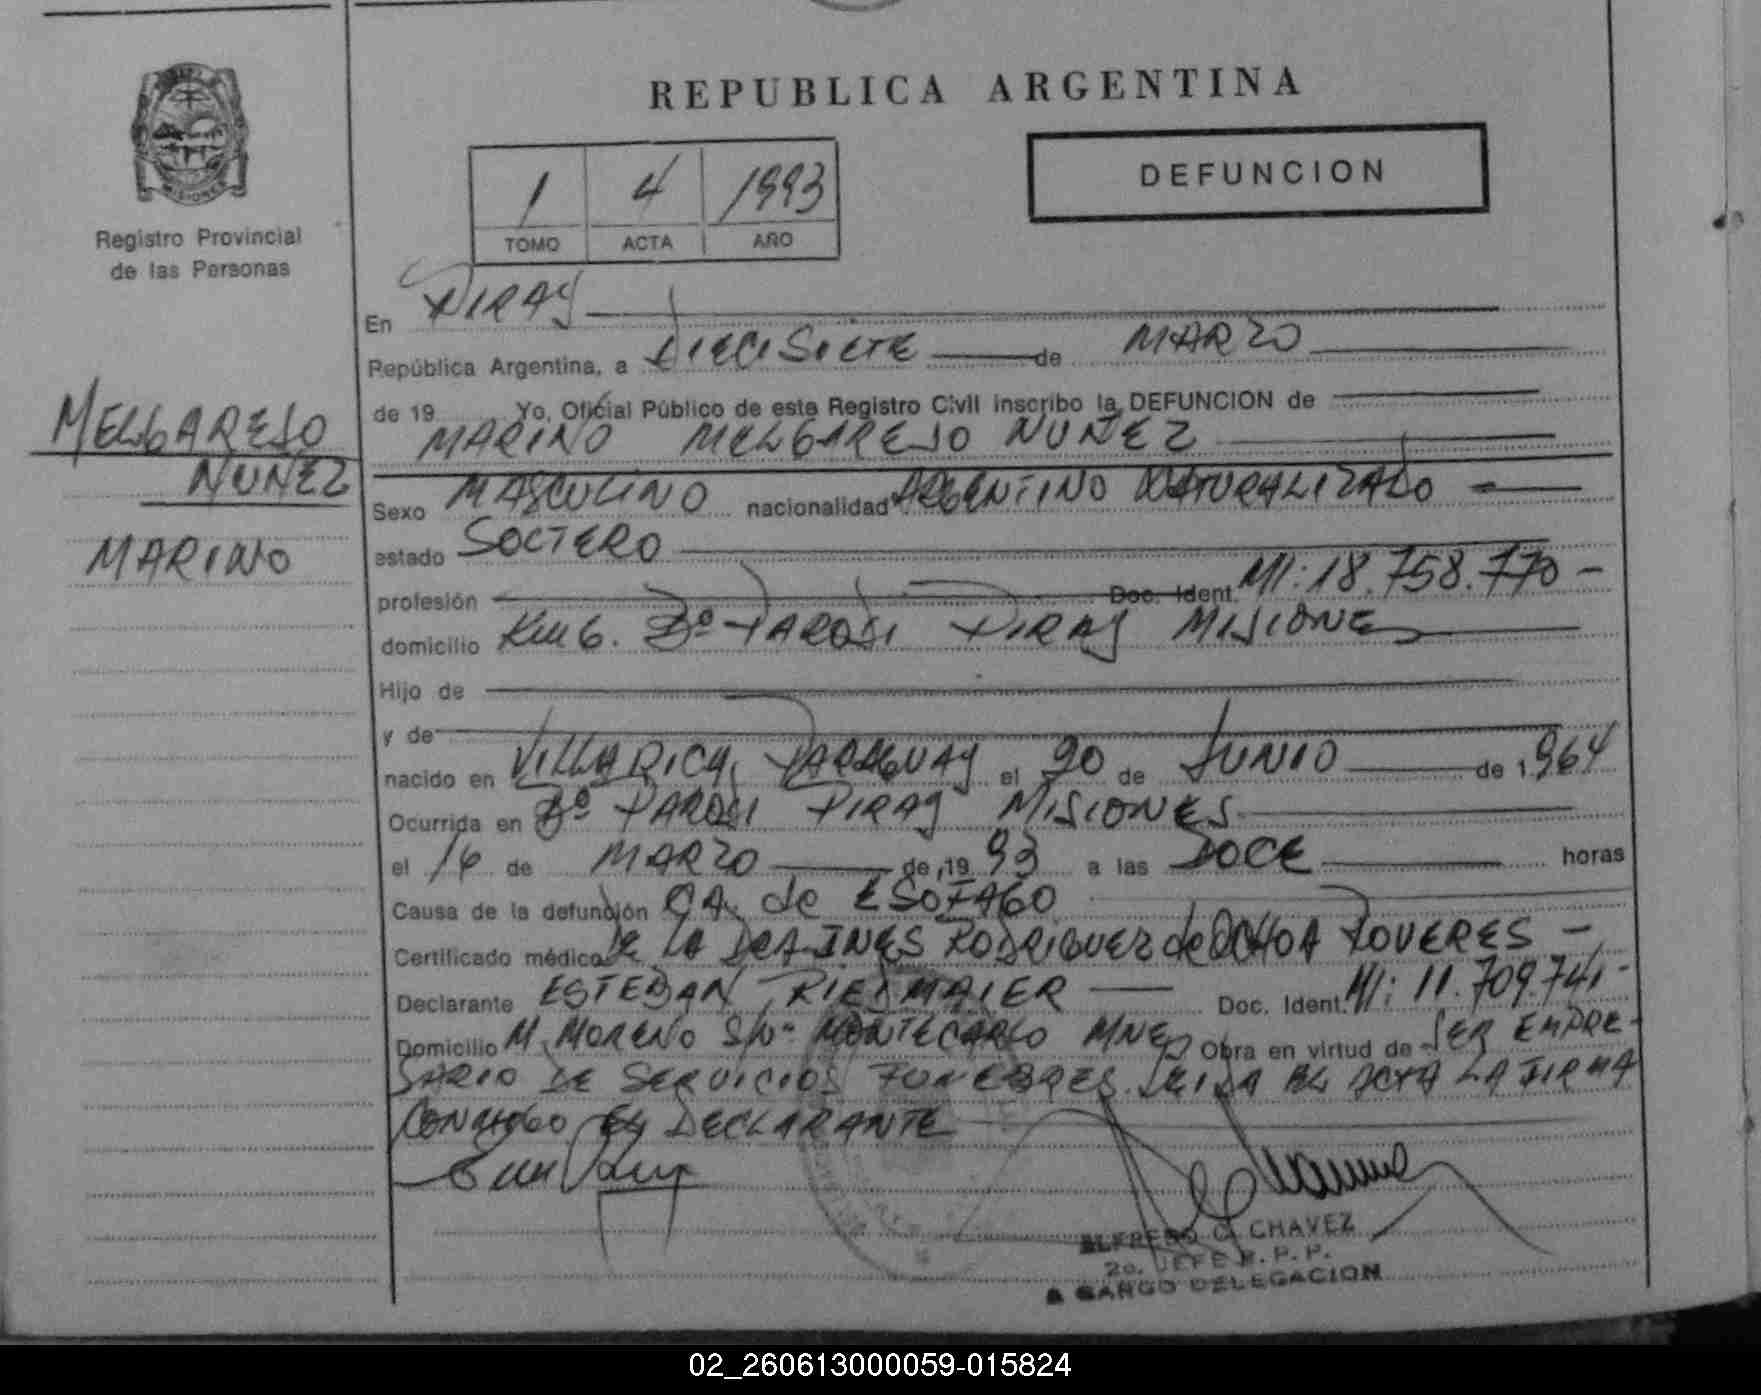 REPUBLICA ARGENTINA
DEFUNCION
1 4 1993
TOMO ACTA AÑO
MISIONES
Registro Provincial
de las Personas
MELGAREJO
NUÑEZ
MARINO
En PIRAY
República Argentina, a DIECISIETE de MARZO
de 19 Yo, Oficial Público de este Registro Civil inscribo la DEFUNCION de
MARINO MELGAREJO NUÑEZ
Sexo MASCULINO nacionalidad ARGENTINO NATURALIZADO
estado SOLTERO
profesión Doc. Ident. MI: 18.758.770 -
domicilio Km 6. Bº PARODI PIRAY MISIONES
Hijo de
y de
nacido en VILLARICA, PARAGUAY el 20 de JUNIO de 1.964
Ocurrida en Bº PARODI PIRAY MISIONES
el 16 de MARZO de 19 93 a las DOCE horas
Causa de la defunción CA. de ESOFAGO
Certificado médico DE LA DRA INES RODRIGUEZ de OCHOA ROVERES -
Declarante ESTEBAN RIEDMAIER Doc. Ident. MI: 11.709.741-
Domicilio M. MORENO S/Nº MONTECARLO MNES Obra en virtud de SER EMPRE-
SARIO DE SERVICIOS FUNEBRES. LEIDA EL ACTA LA FIRMA
CONMIGO EL DECLARANTE
ALFREDO C. CHAVEZ
2o. JEFE R. P. P.
A CARGO DELEGACION
02_260613000059-015824